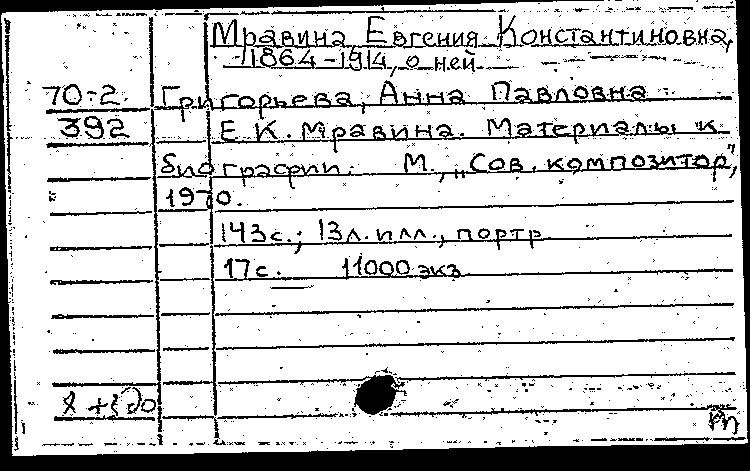 Мравина Евгения Константиновна,
1864-1914, о ней
70-2 Григорьева, Анна Павловна
392 Е.К. Мравина. Материалы к
биографии. М., „Сов. композитор",
1970.
143с.; 13л. илл., портр
17с. 11000 экз